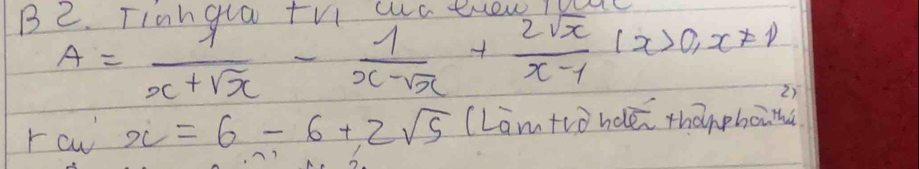 B2. Tính giá trị của biểu thức
A = 1/(x+√x) - 1/(x-√x) + 2√x/(x-1) (x>0, x≠1)
tại x = 6 - 6 + 2√5 (Làm tròn đến thập phân thứ 2)